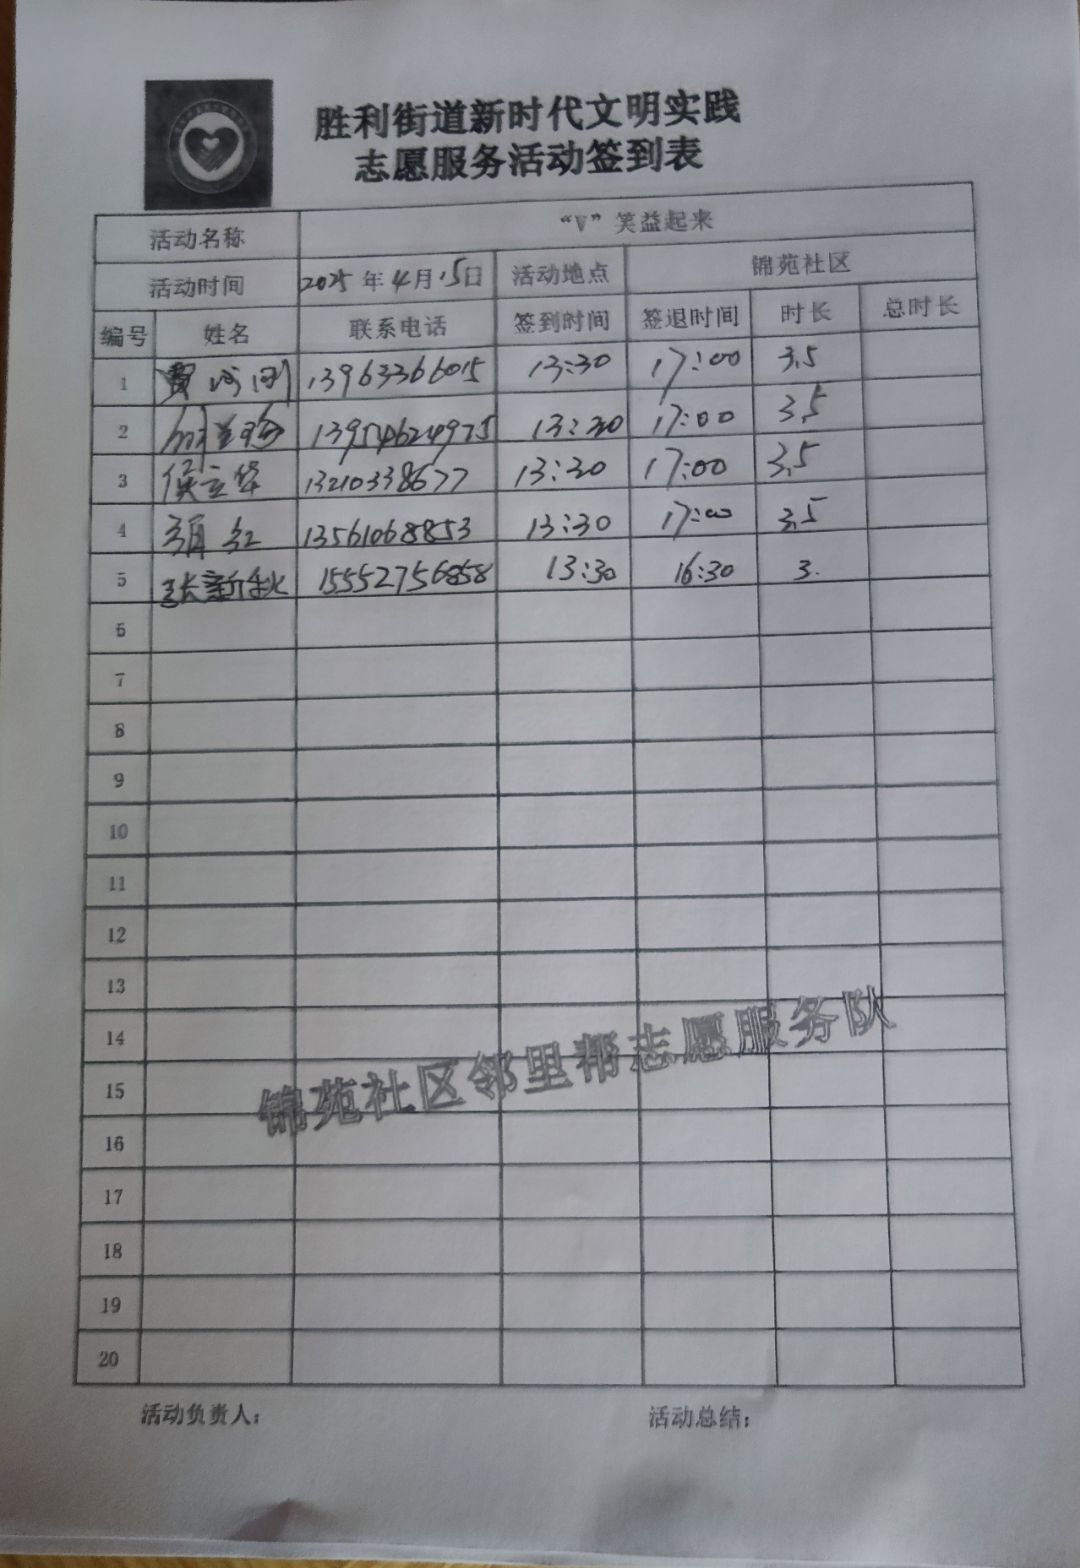 胜利街道新时代文明实践
志愿服务活动签到表
活动名称 “V”笑益起来
活动时间 2025年4月15日 活动地点 锦苑社区
编号 姓名 联系电话 签到时间 签退时间 时长 总时长
1 13963366015 13:30 17:00 3.5
2 13954624975 13:30 17:00 3.5
3 侯立华 13210338677 13:30 17:00 3.5
4 13561068853 13:30 17:00 3.5
5 张新秋 15552756858 13:30 16:30 3.
6
7
8
9
10
11
12
13
14
15
锦苑社区邻里帮志愿服务队
16
17
18
19
20
活动负责人: 活动总结: